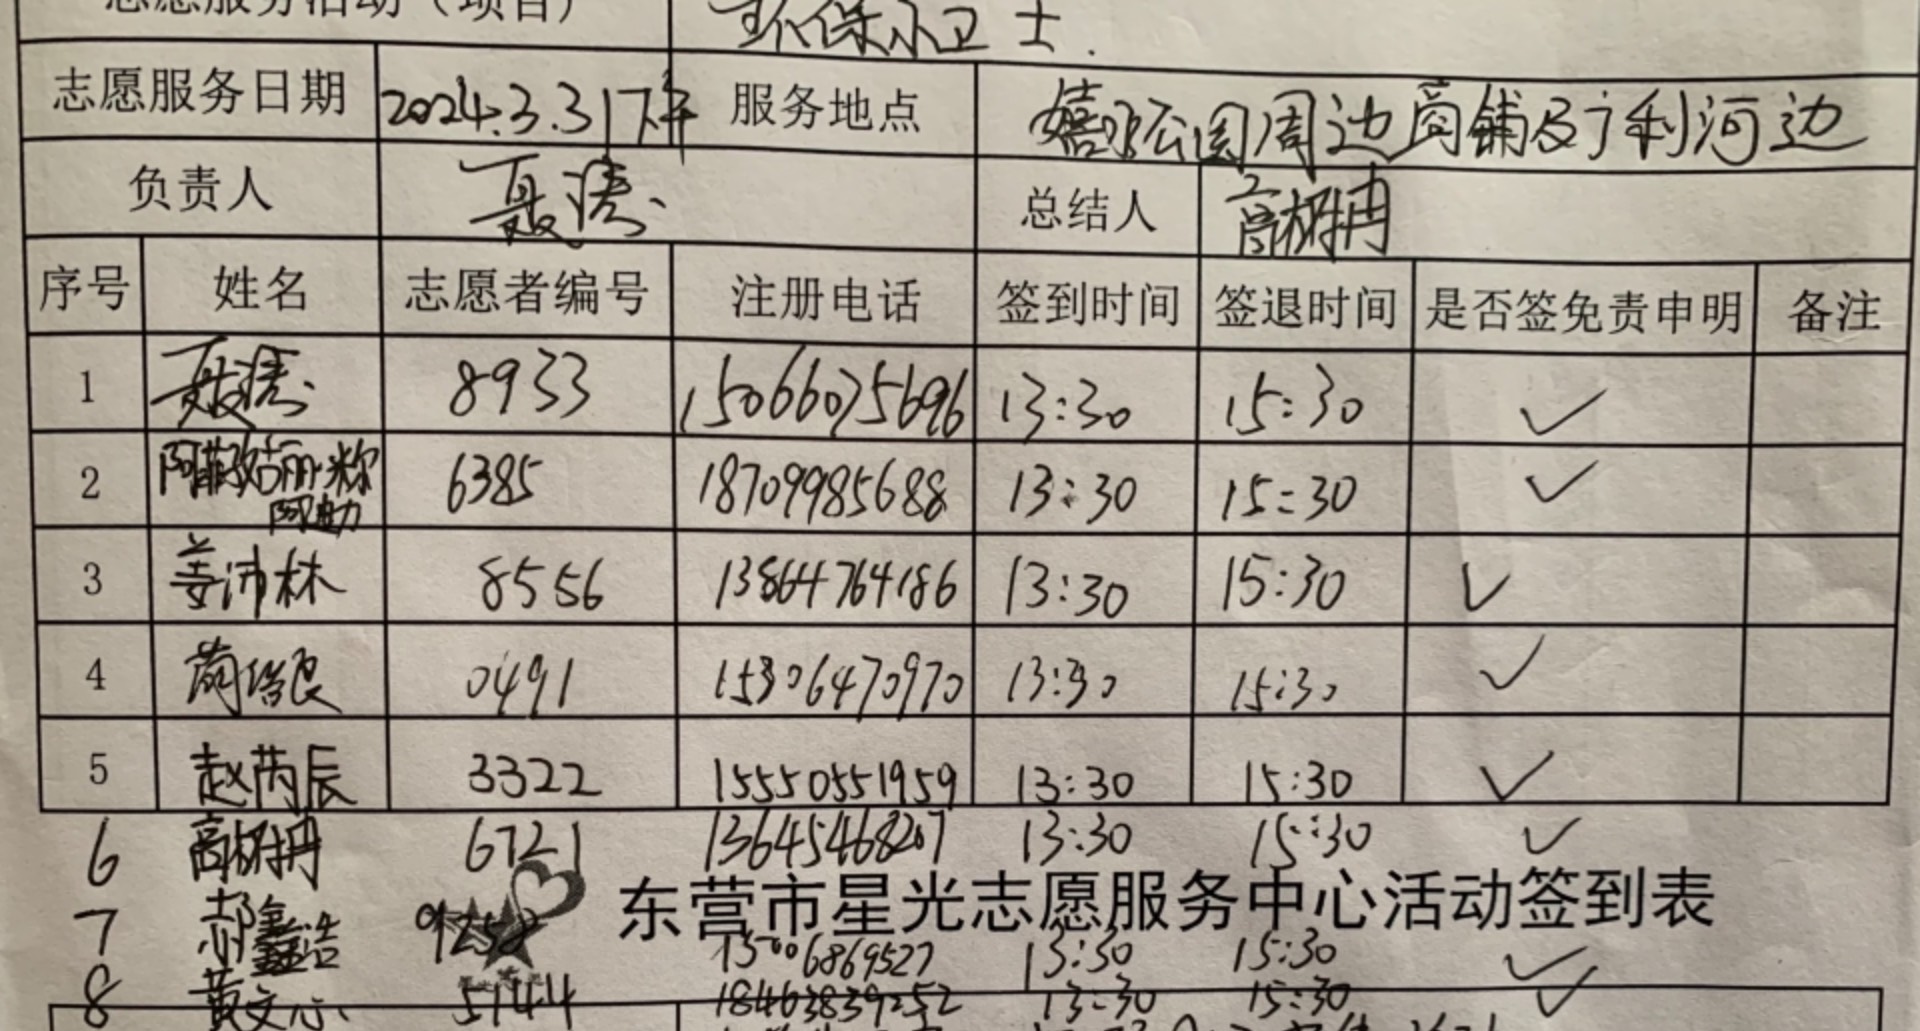 志愿服务活动（项目） 环保小卫士.
志愿服务日期 2024.3.31下午 服务地点 公园周边商铺及广利河边
负责人 聂涛 总结人 高树冉
序号 姓名 志愿者编号 注册电话 签到时间 签退时间 是否签免责申明 备注
1 聂涛 8933 15066075696 13:30 15:30 ✓
2 阿 姑丽·米尔 6385 18709985688 13:30 15:30 ✓
3 姜沛林 8556 13864764186 13:30 15:30 ✓
4 良 0491 15306470970 13:30 15:30 ✓
5 赵芮辰 3322 15550551959 13:30 15:30 ✓
6 高树冉 6721 13645468207 13:30 15:30 ✓
东营市星光志愿服务中心活动签到表
7 郝鑫浩 13:30 15:30 ✓
8 黄文心 5144 18463839252 13:30 15:30 ✓